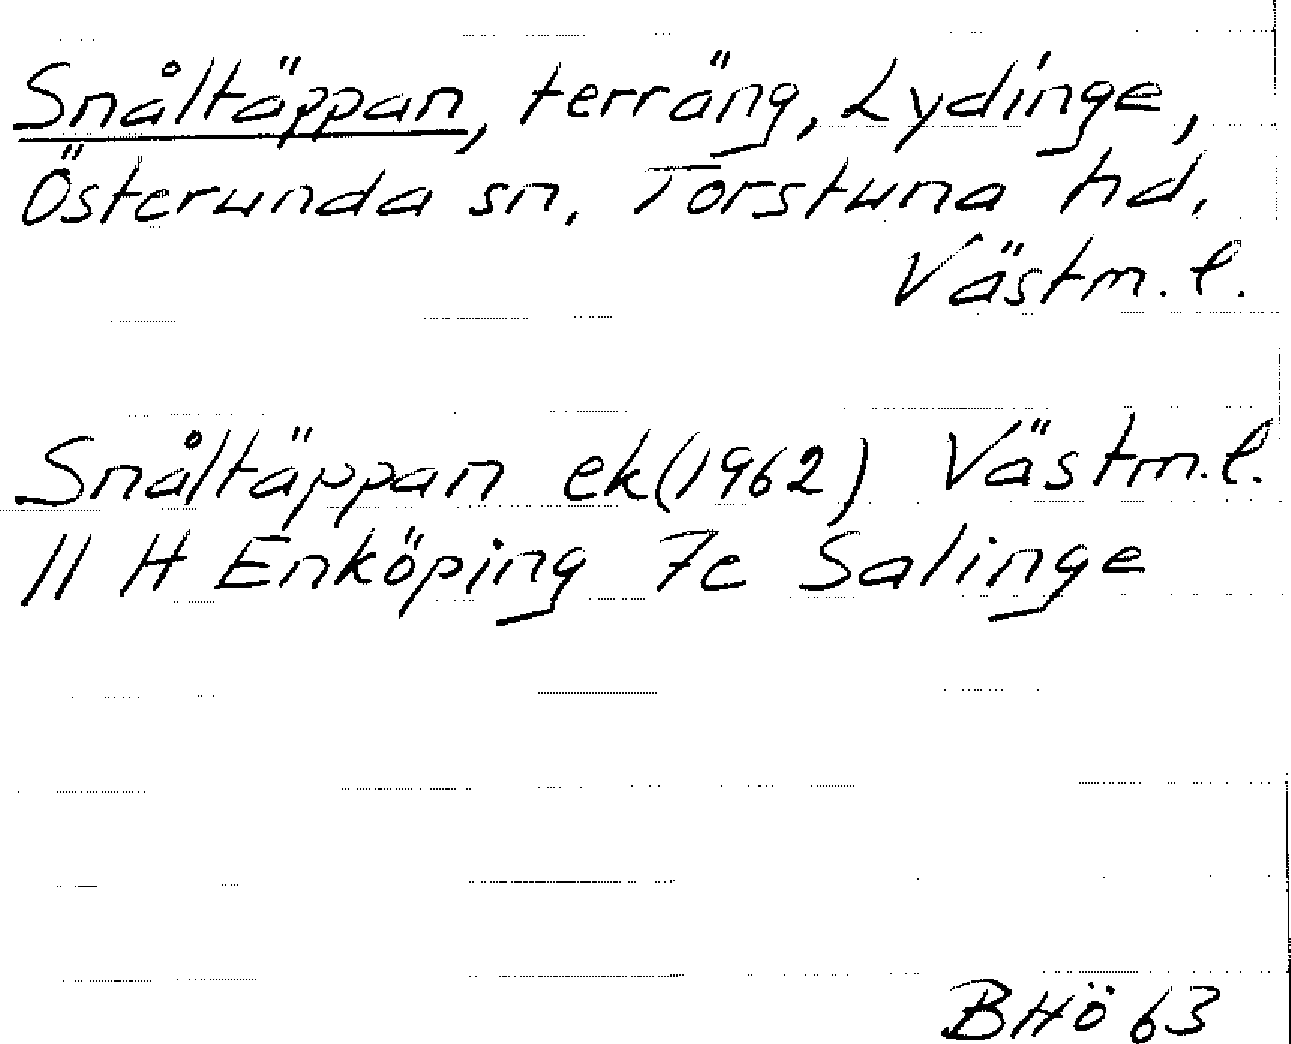 Snåltäppan, terräng, Lydinge,
Österunda sn. Torstuna hd.
Västm. l.
Snåltäppan ek (1962) Västm. l.
11 H Enköping 7c Salinge
BHö 63